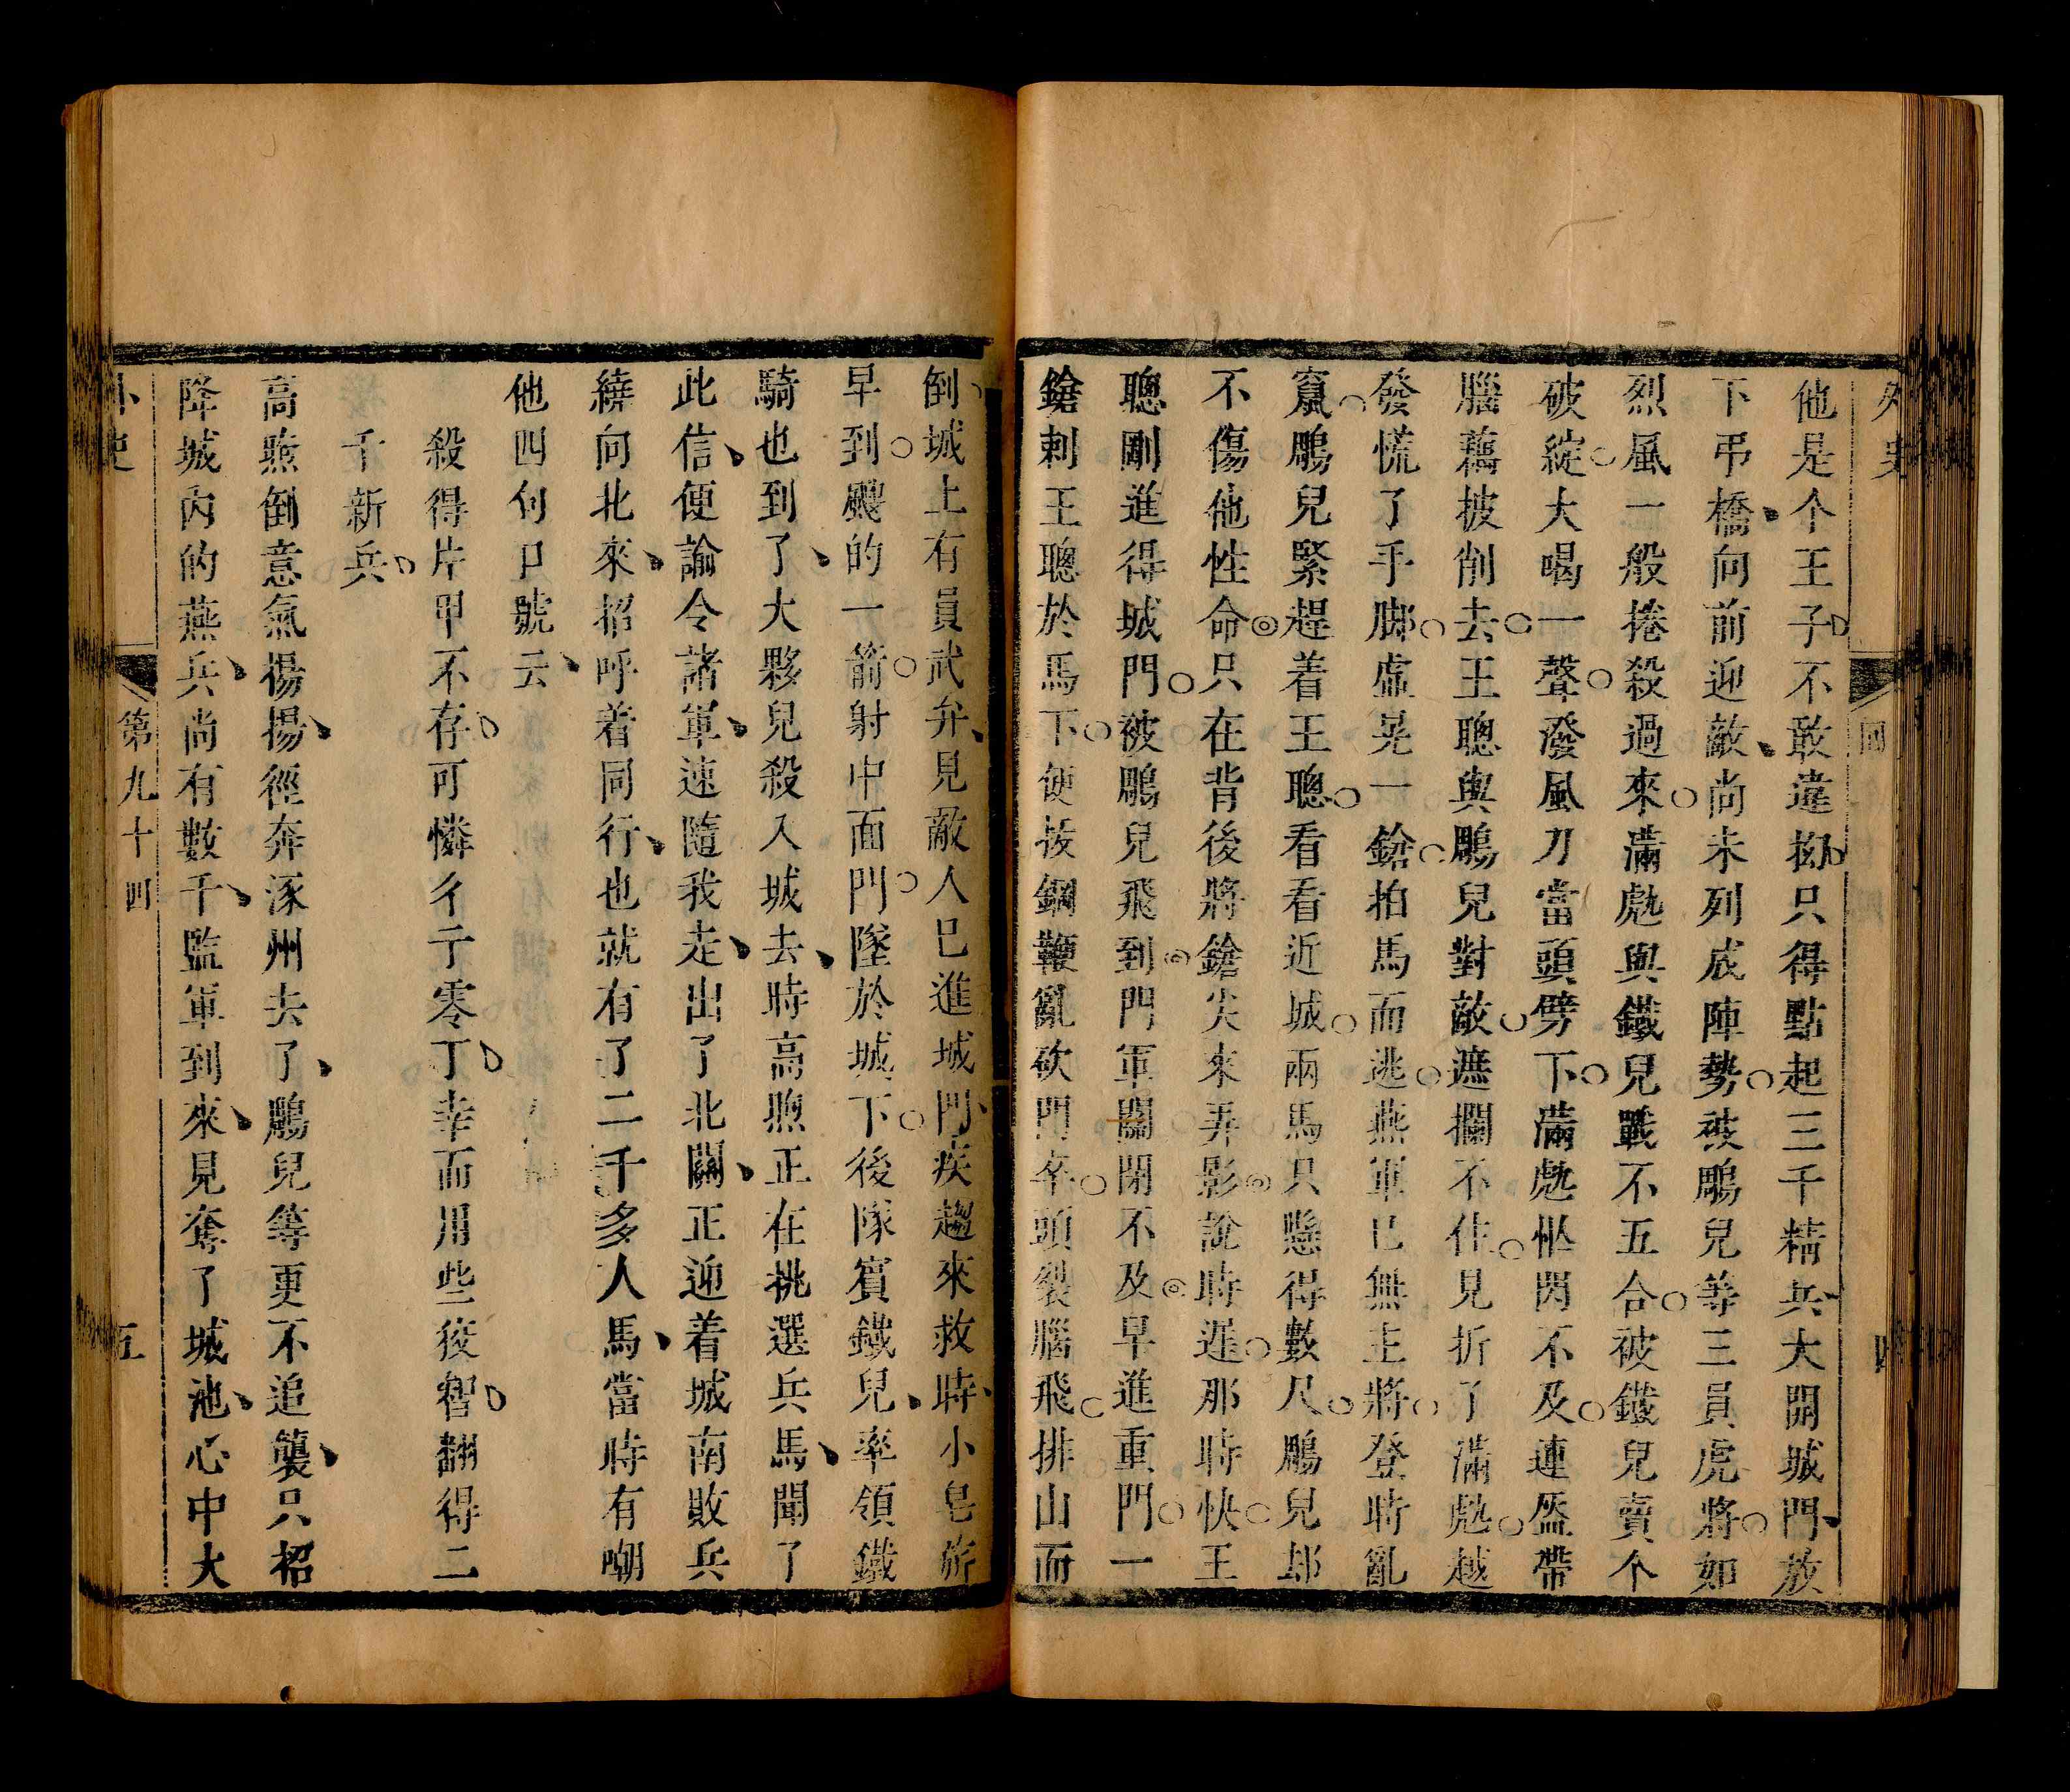 外史
回
四
他是个王子不敢違拗只得點起三千精兵大開城門放
下弔橋向前迎敵尚未列成陣勢被鵰兒等三員虎將如
烈風一般捲殺過來滿彪與鐵兒戰不五合被鐵兒賣个
破綻大喝一聲潑風刀當頭劈下滿彪怎閃不及連盔帶
腦藕披削去王聰與鵰兒對敵遮攔不住見折了滿彪越
發慌了手腳虛晃一鎗拍馬而逃燕軍已無主將登時亂
竄鵰兒緊趕着王聰看看近城兩馬只懸得數尺鵰兒却
不傷他性命只在背後將鎗尖來弄影說時遲那時快王
聰剛進得城門被鵰兒飛到門軍關閉不及早進重門一
鎗刺王聰於馬下便拔鋼鞭亂砍門卒頭裂腦飛排山而
倒城上有員武弁見敵人已進城門疾趨來救時小皂旂
早到颼的一箭射中面門墜於城下後隊賓鐵兒率領鐵
騎也到了大夥兒殺入城去時高煦正在挑選兵馬聞了
此信便諭令諸軍速隨我走出了北關正迎着城南敗兵
繞向北來招呼着同行也就有了二千多人馬當時有嘲
他四句口號云
殺得片甲不存可憐彳亍零丁幸而用些狡智翻得二
千新兵
高煦倒意氣揚揚徑奔涿州去了鵰兒等更不追襲只招
降城內的燕兵尚有數千監軍到來見奪了城池心中大
外史
第九十四
五